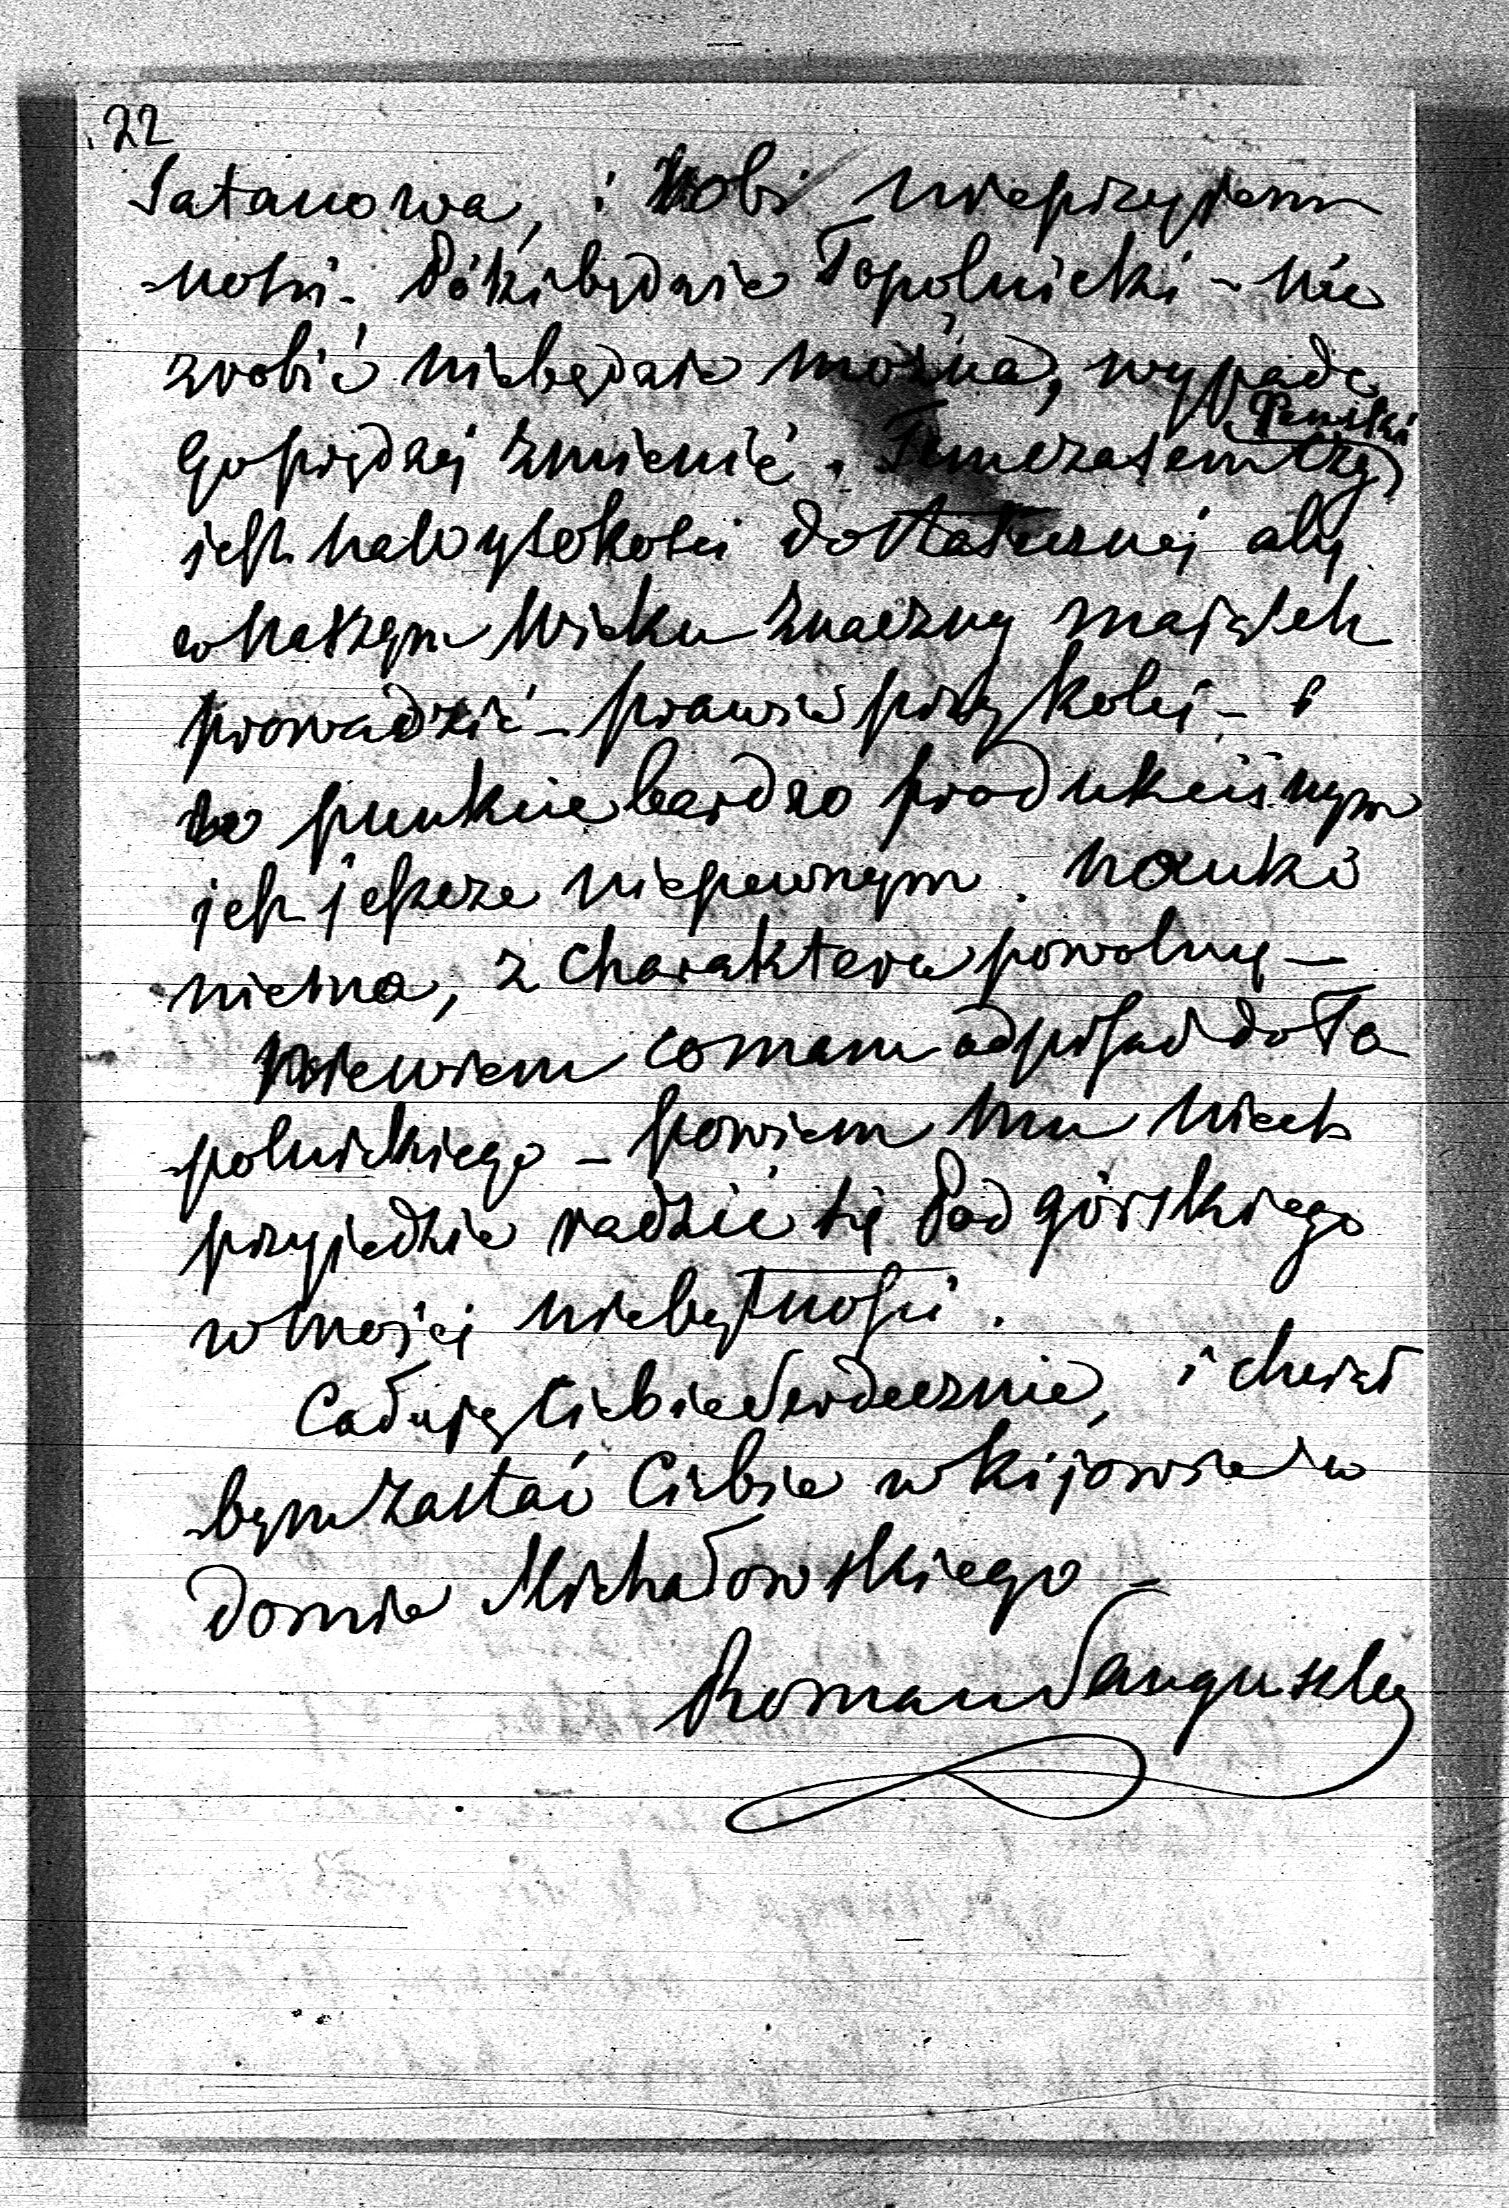 22
Satanowa, i robi nieprzyjem
-ności. Póki będzie Topolnicki - nic
zrobić niebędzie można, wypada
Go prędzej zmienić. Tymczasem czy
jest na wysokości dostatecznej aby
w naszym wieku znaczny majątek
prowadzić - prawie przy kolej - i
w punkcie bardzo produkcijnym
jest jeszcze niepewnym. nauki
niema, z charakteru powolny -
Niewiem co mam odpisać do To
-polnickiego - powiem mu niech
przyjedzie radzić się Podgórskiego
w mojej niebytności.
Całuję Ciebie Serdecznie, i chciał
-bym zastać Ciebie w Kijowie w
Domie Michałowskiego -
Roman Sanguszko